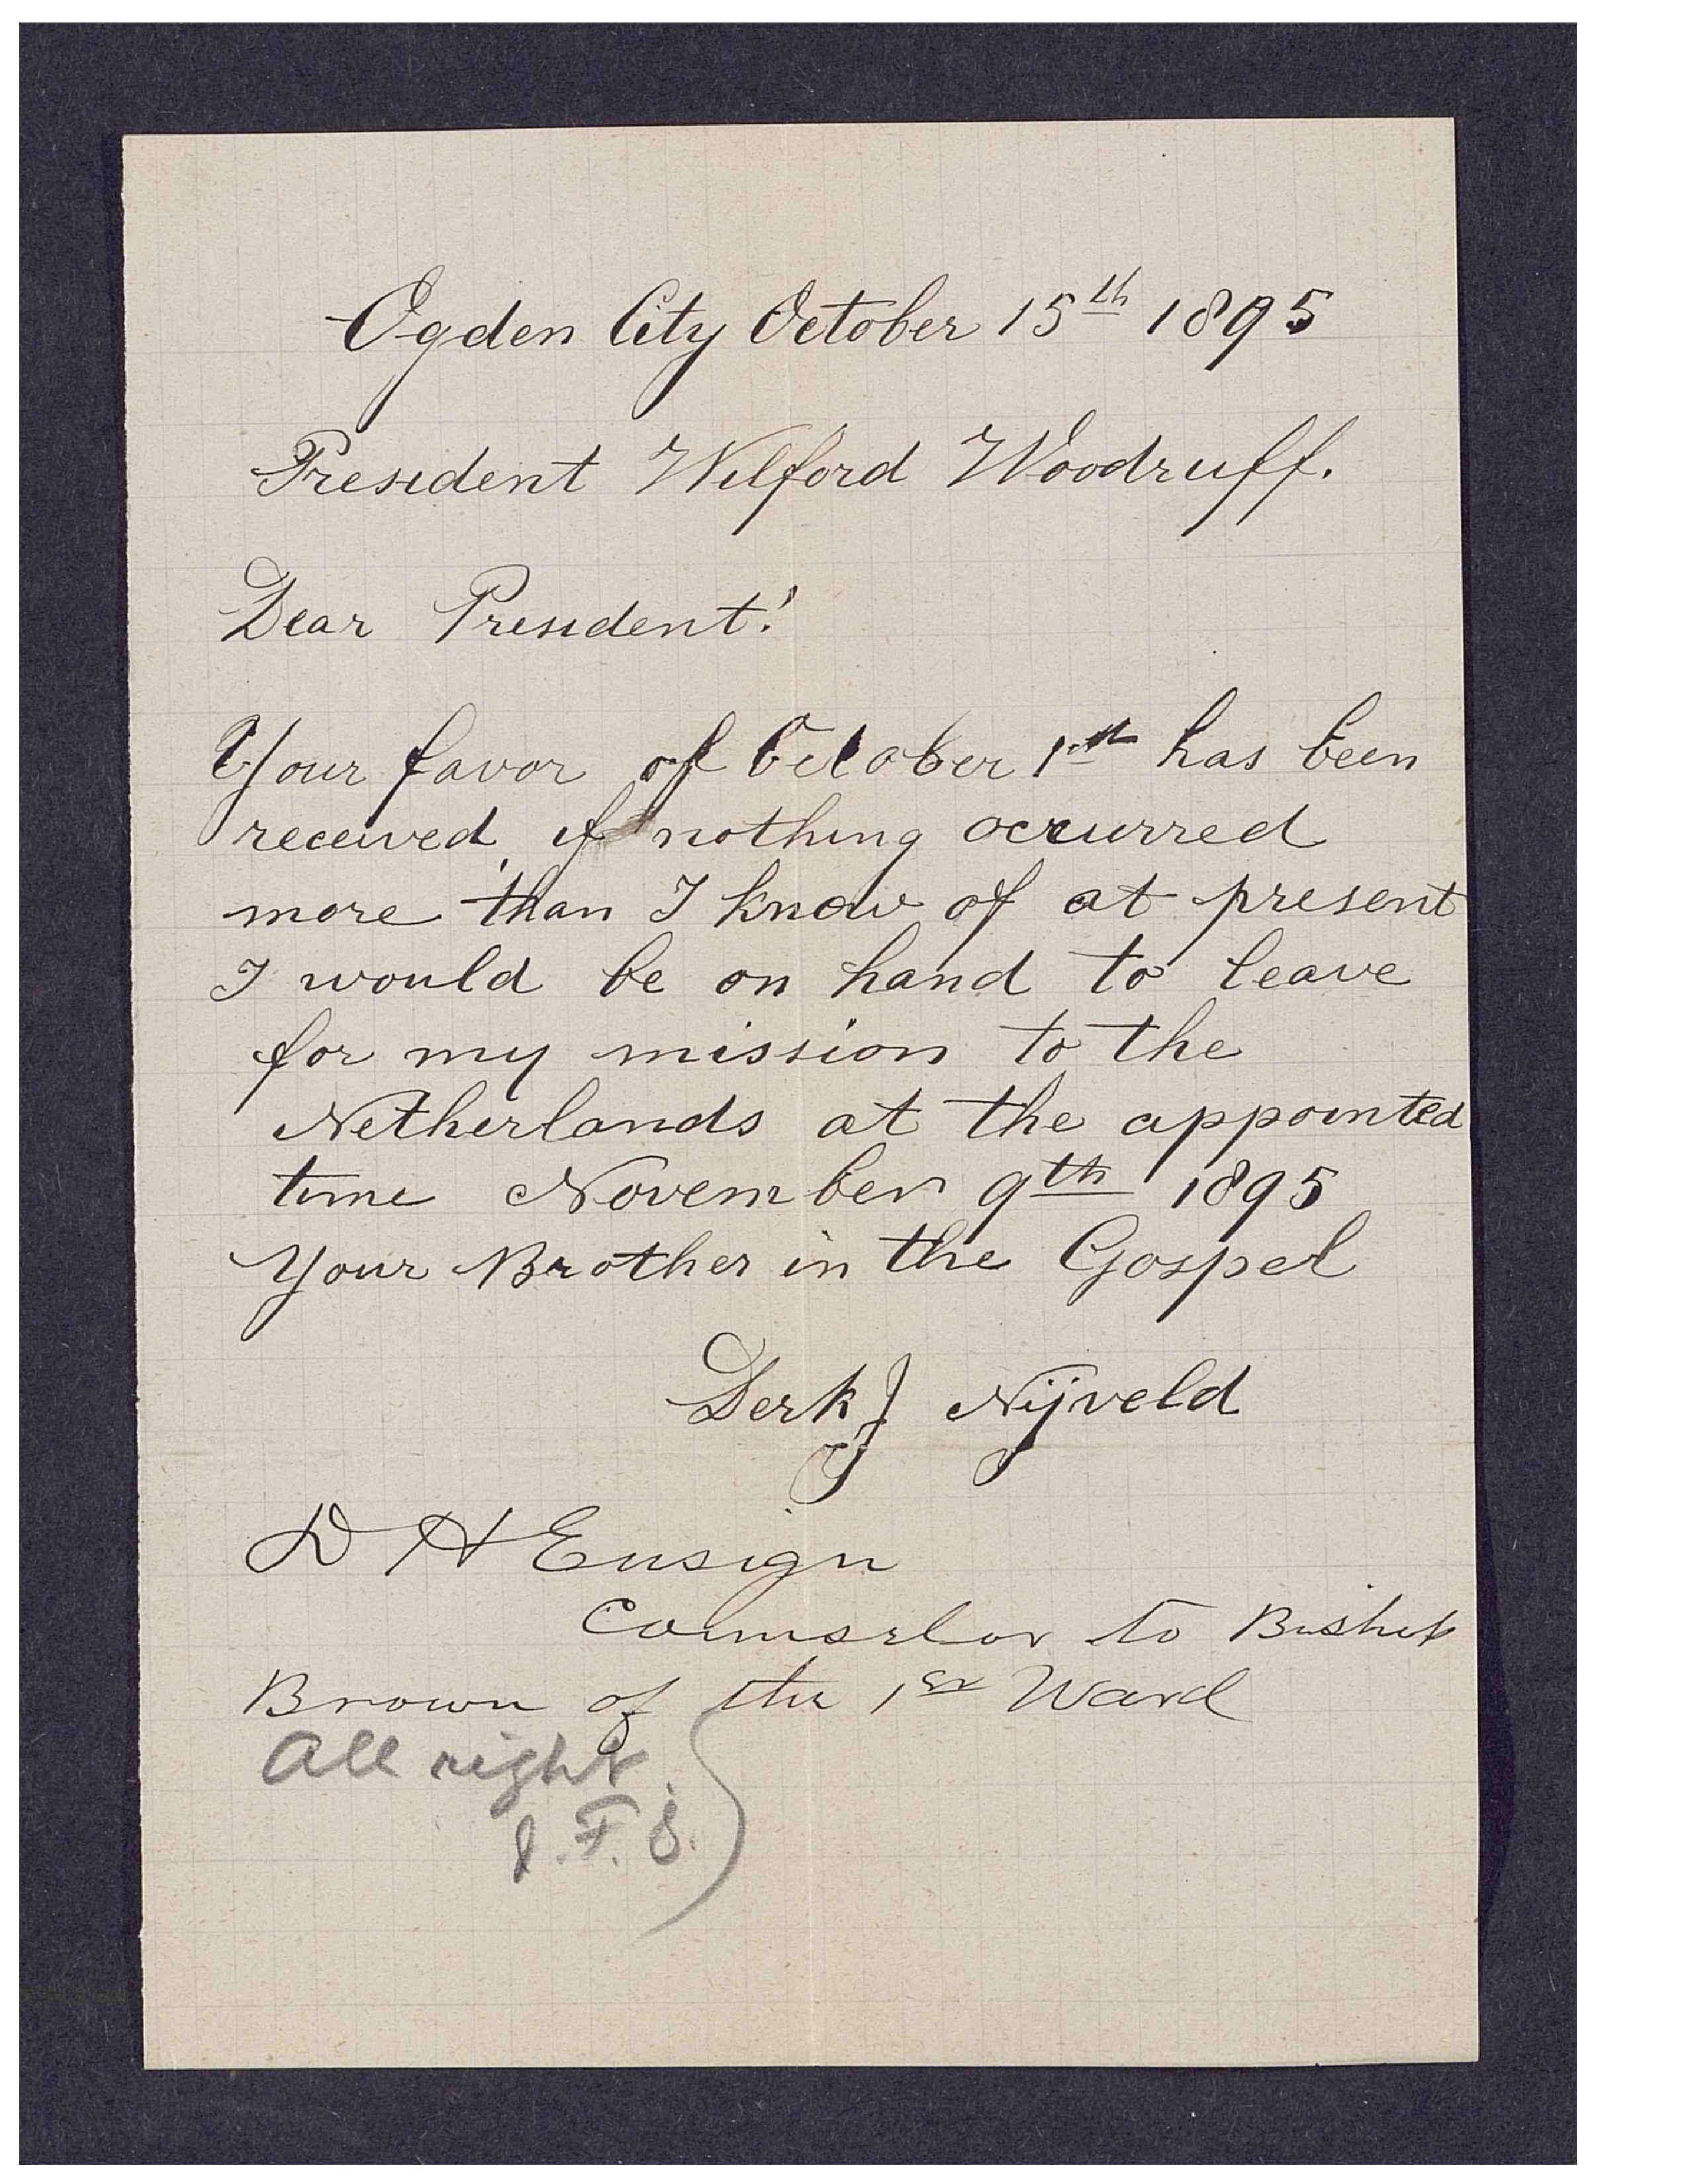 Ogden City October 15th 1895
President Wilford Woodruff.
Dear President!
Your favor of October 1st has been
received, if nothing occurred
more than I know of at present
I would be on hand to leave
for my mission to the
Netherlands at the appointed
time November 9th 1895
Your Brother in the Gospel
Derk J Nijveld
D H Ensign
Counselor to Bishop
Brown of the 1st Ward
All right
J. F. S.